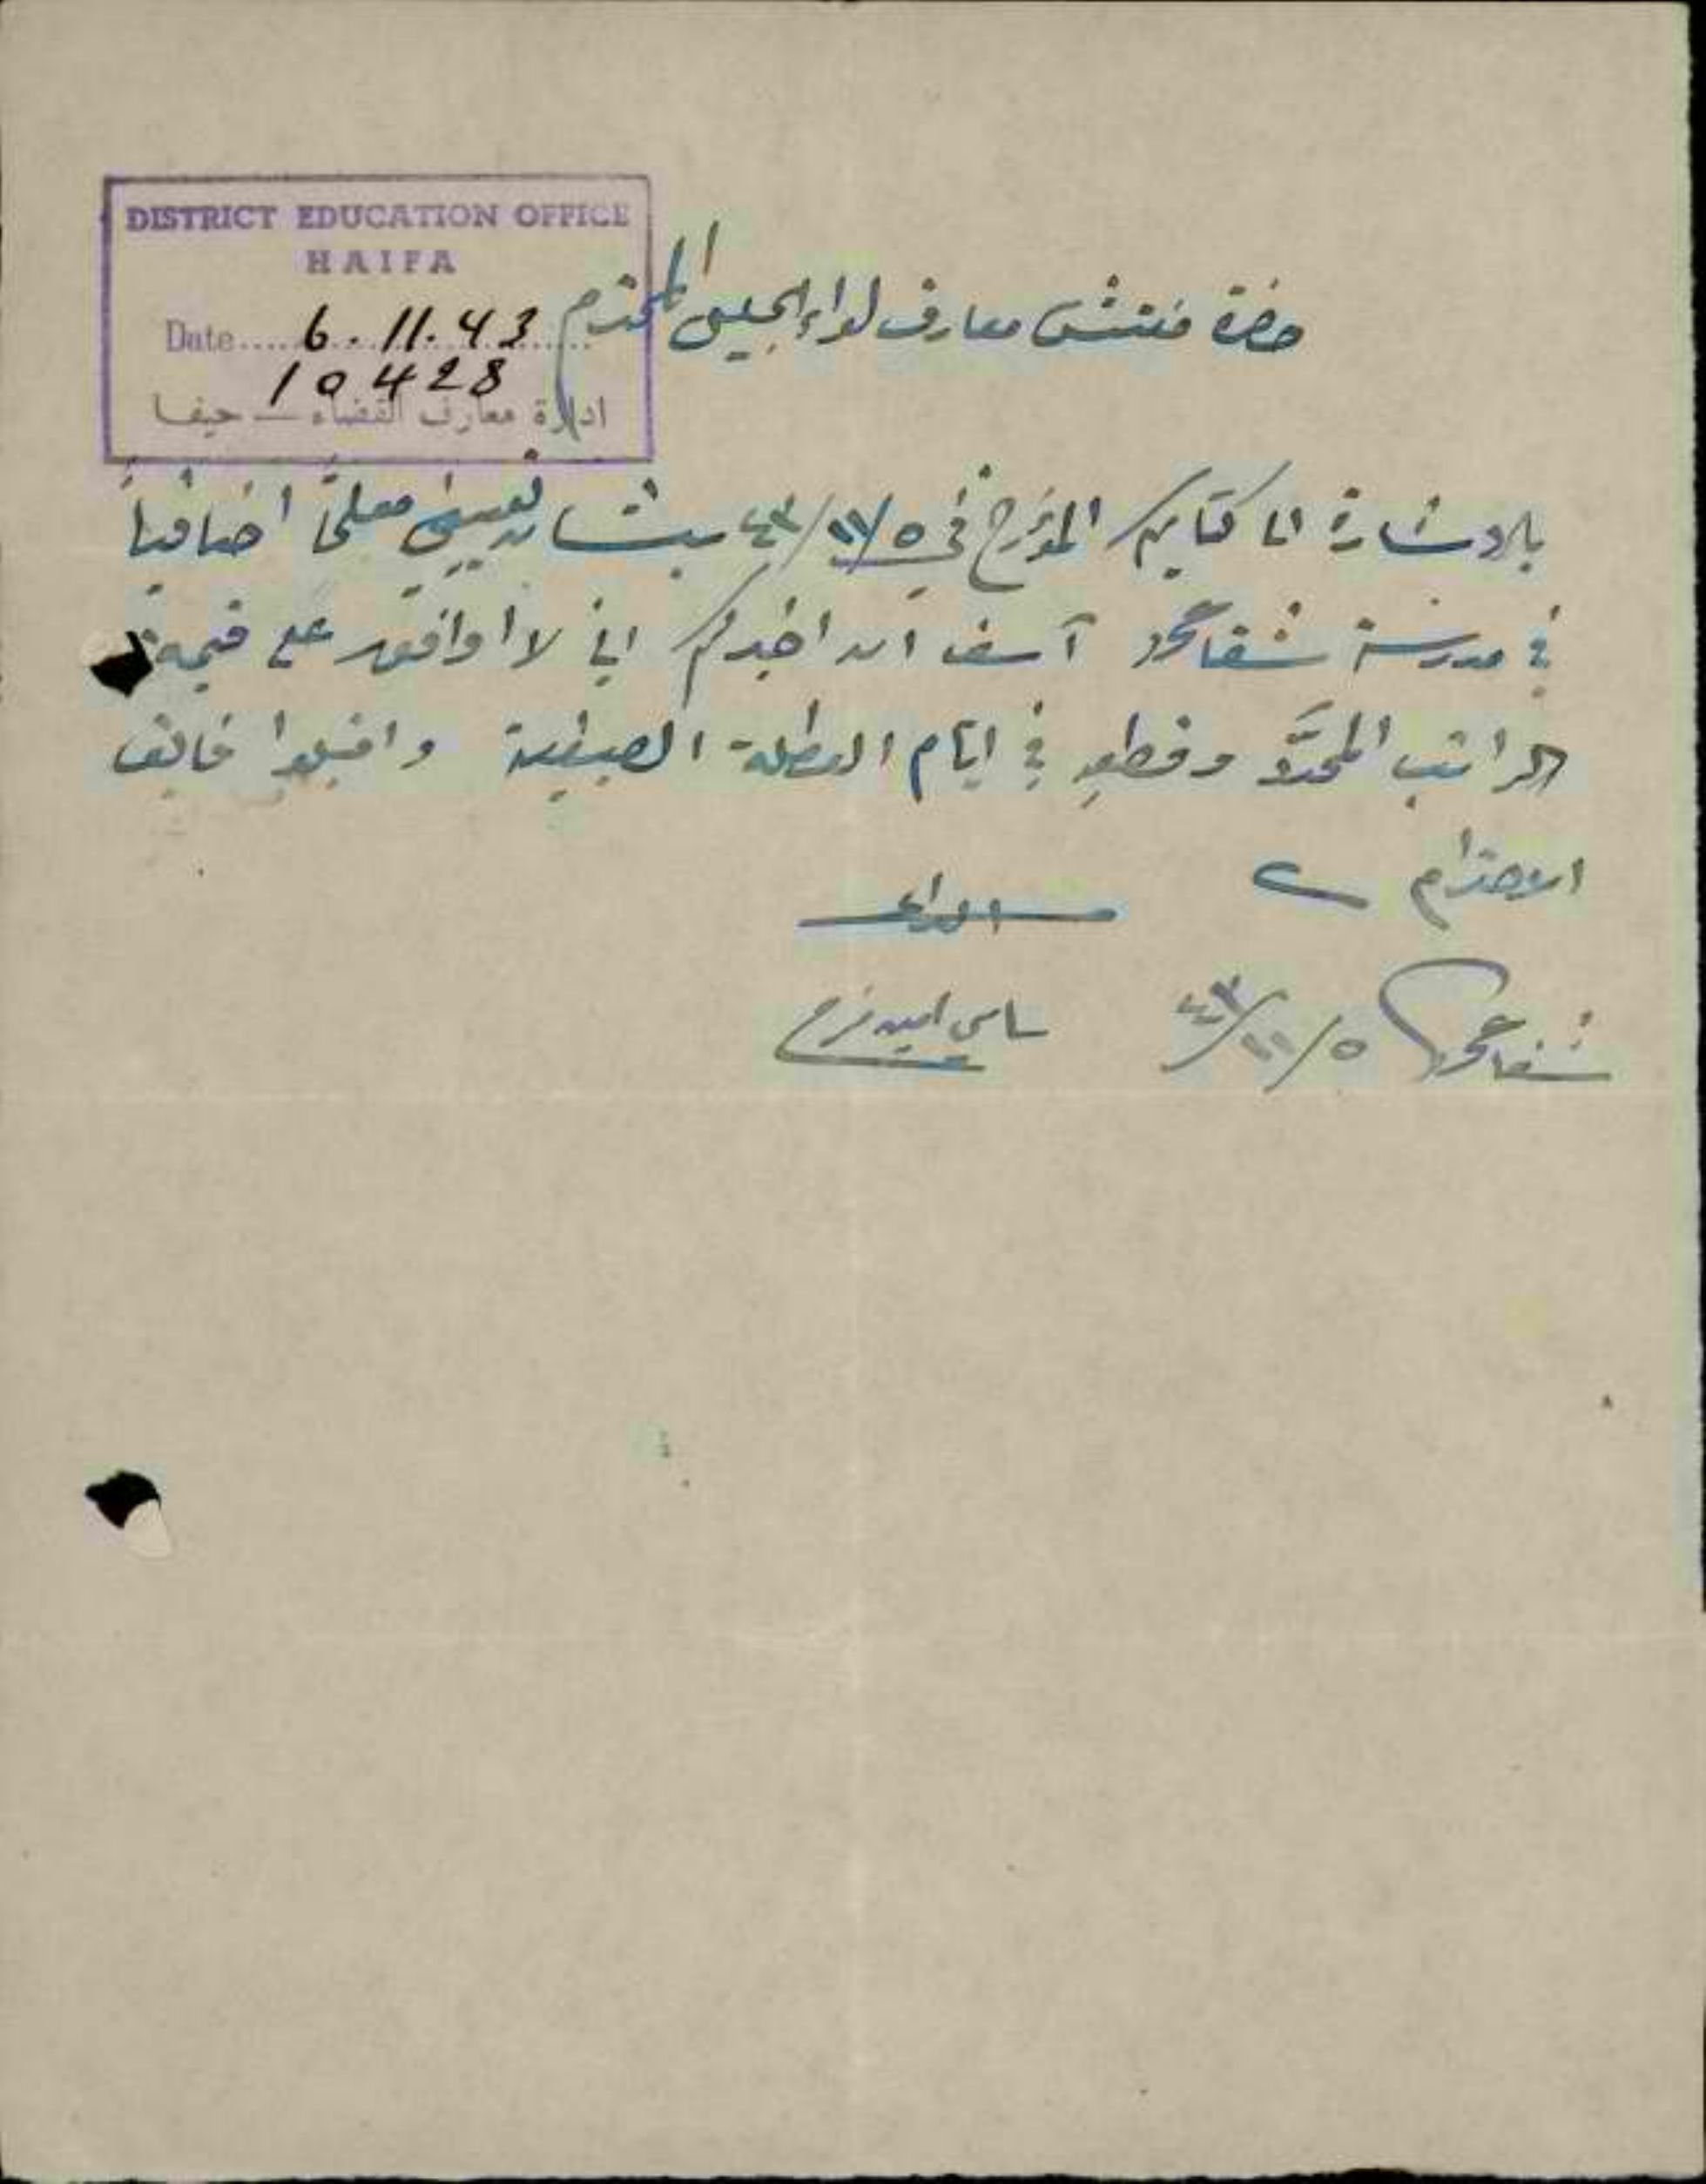 DISTRICT EDUCATION OFFICE
HAIFA
Date.... 6.11.43
10428
ادارة معارف القضاء — حيفا
حضرة مفتش معارف لواء الجليل المحترم
بالاشارة الى كتابكم المؤرخ في ٥/١١/٤٣ بشان تعييني معلماً اضافياً
في مدرسة شفاعمرو آسف ان اخبركم اني لا اوافق على قيمة
الراتب المحدد وقطعه في ايام العطلة الصيفية واقبلوا فائق
الاحترام
الداعي
شفاعمرو ٥/١١/٤٣
سامي امين فرح